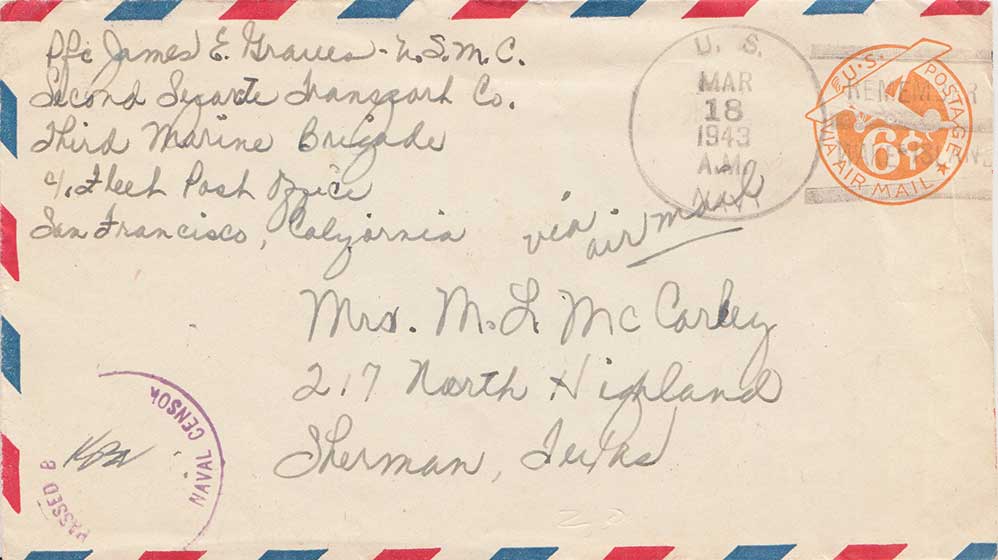 Pfc James E. Graves - U.S.M.C.
Second Separte Transport Co.
Third Marine Brigade
c/o Fleet Post Office
San Francisco, California
via
air mail
U. S.
MAR
18
1943
A.M.
NAVY
REMEMBER
WAKE ISLAND
U.S. POSTAGE
6¢
VIA AIR MAIL
Mrs. M. L. McCorley
217 North Highland
Sherman, Texas
PASSED B
NAVAL CENSOR